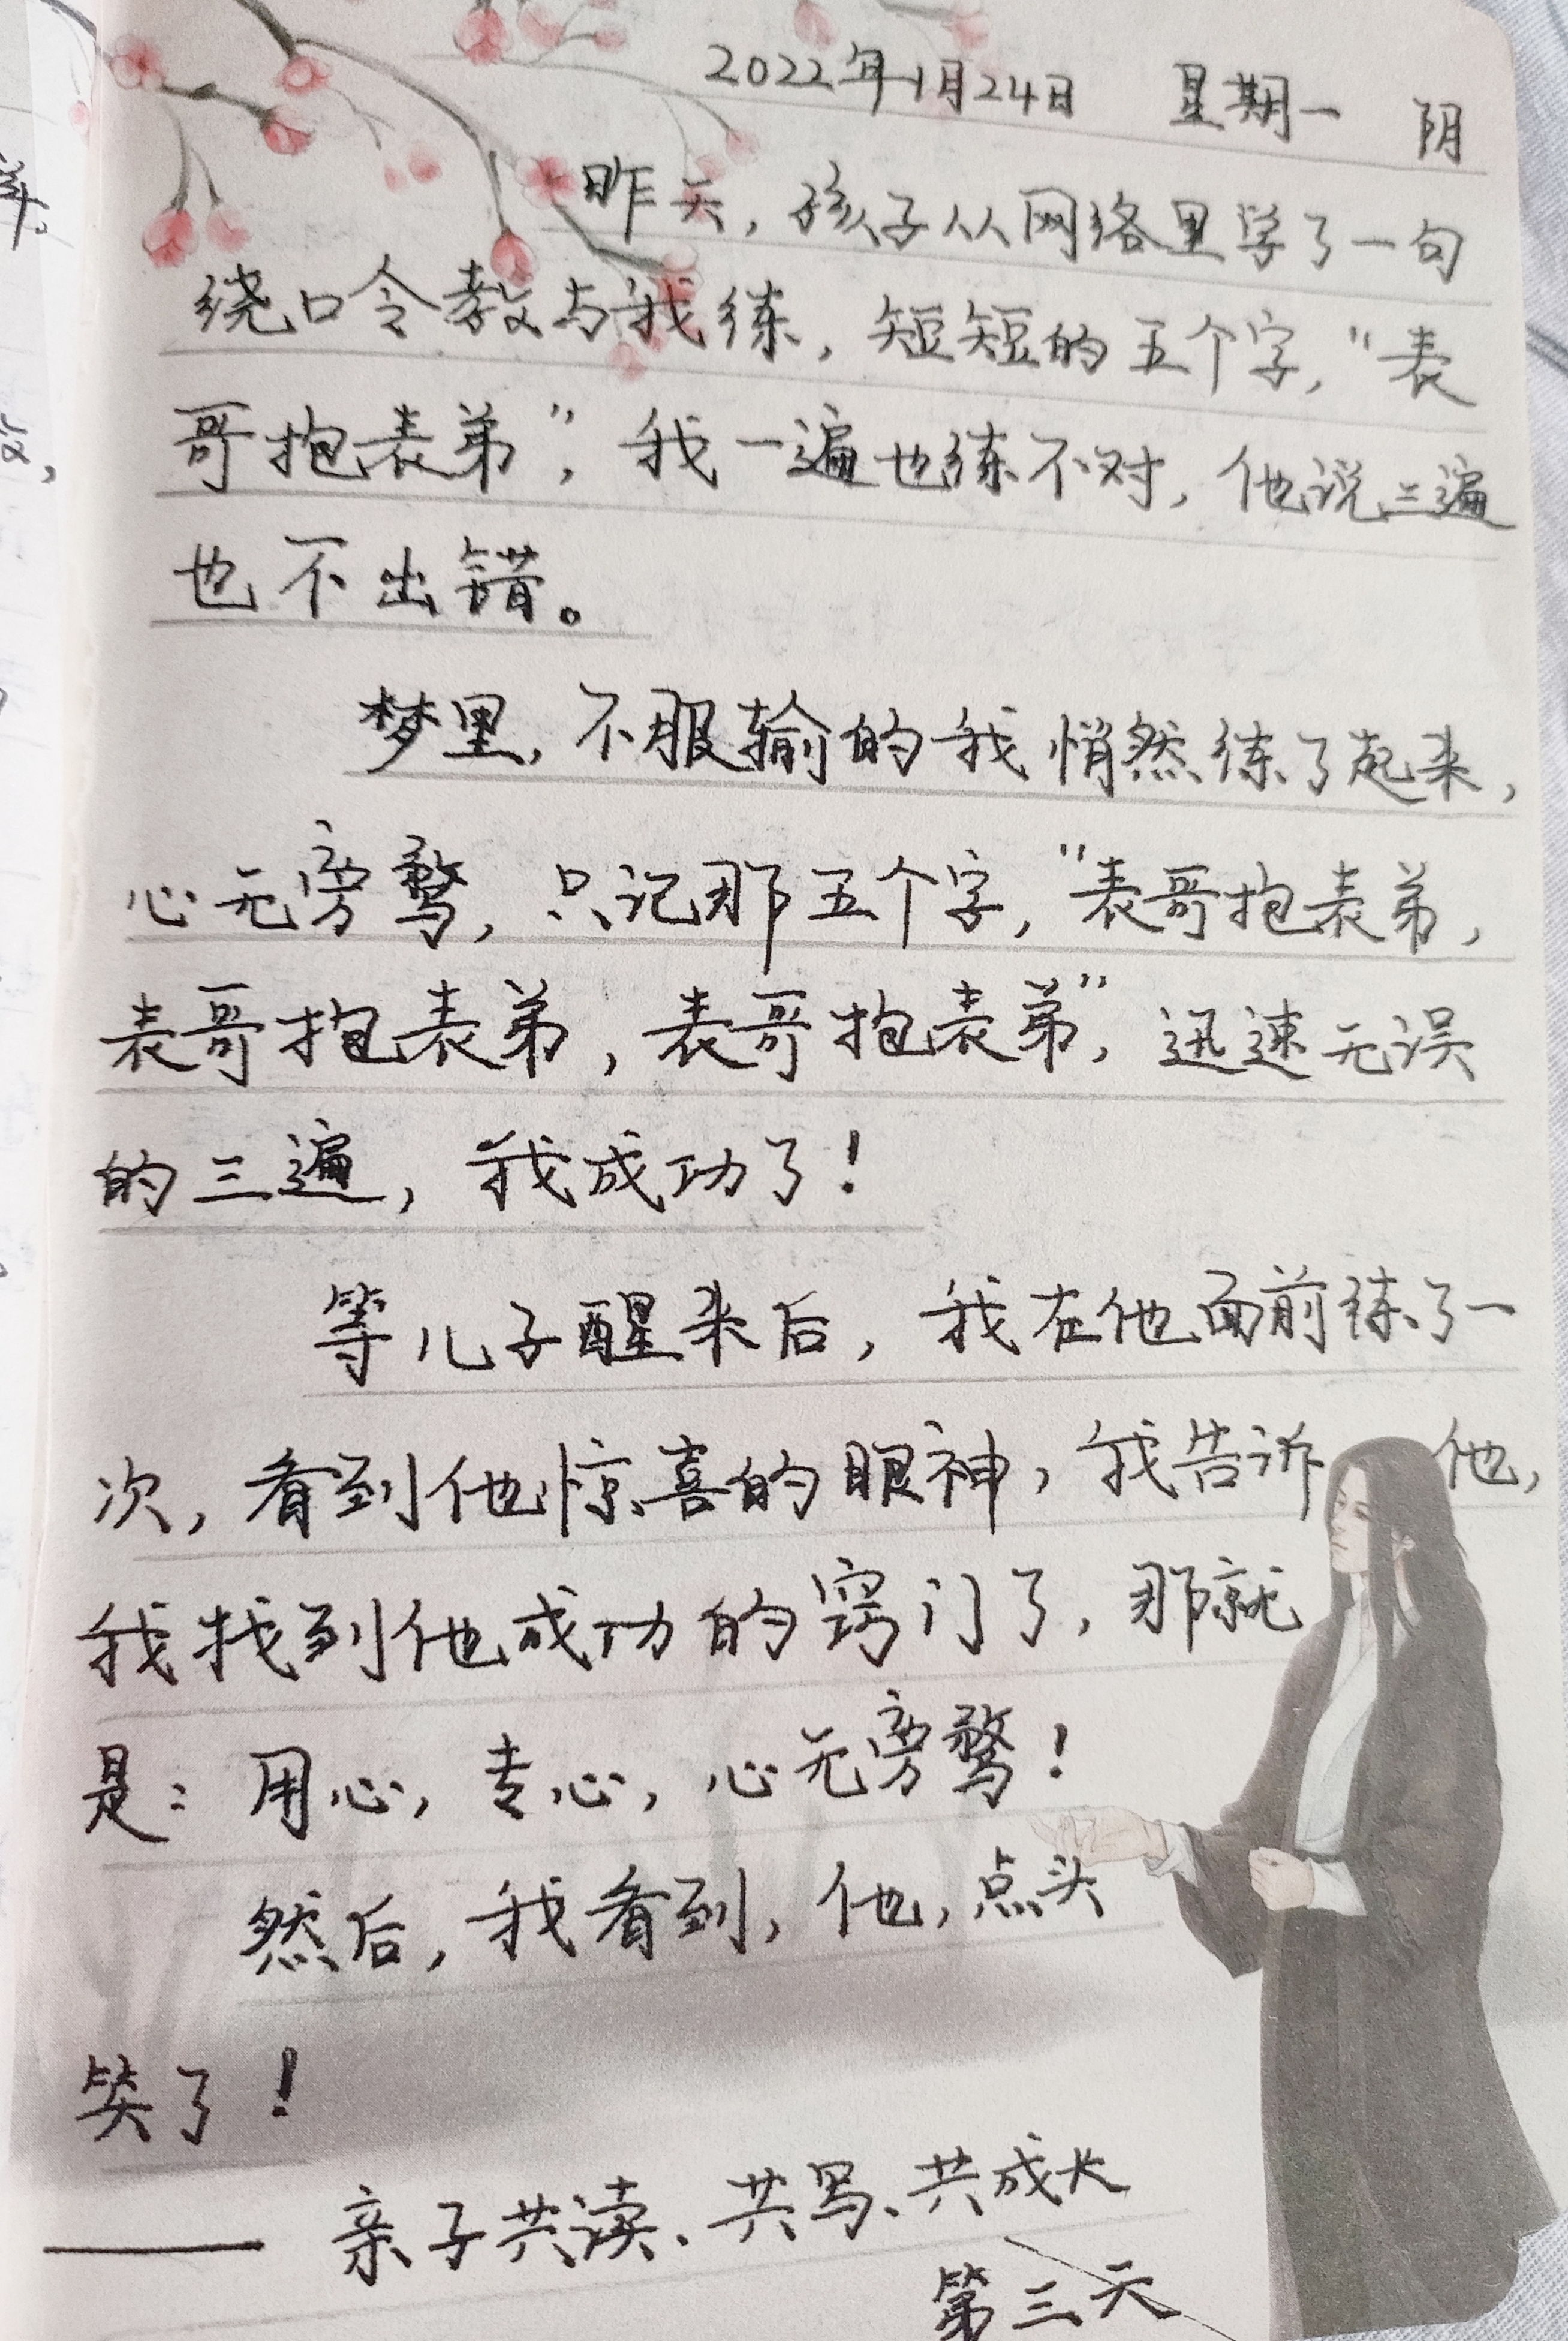 2022年1月24日 星期一 阴
昨天，孩子从网络里学了一句
绕口令教与我练，短短的五个字，“表
哥抱表弟”，我一遍也练不对，他说三遍
也不出错。
梦里，不服输的我悄然练了起来，
心无旁鹜，只记那五个字，“表哥抱表弟，
表哥抱表弟，表哥抱表弟”，迅速无误
的三遍，我成功了！
等儿子醒来后，我在他面前练了一
次，看到他惊喜的眼神，我告诉他，
我找到他成功的窍门了，那就
是：用心，专心，心无旁鹜！
然后，我看到，他，点头
笑了！
—— 亲子共读、共写、共成长
第三天